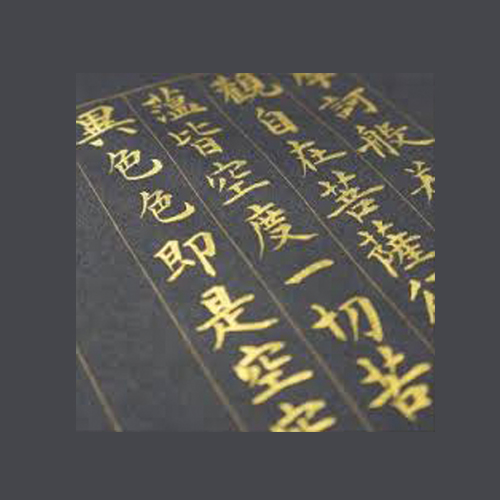 摩訶般若
觀自在菩薩行
蘊皆空度一切苦
異色色即是空空